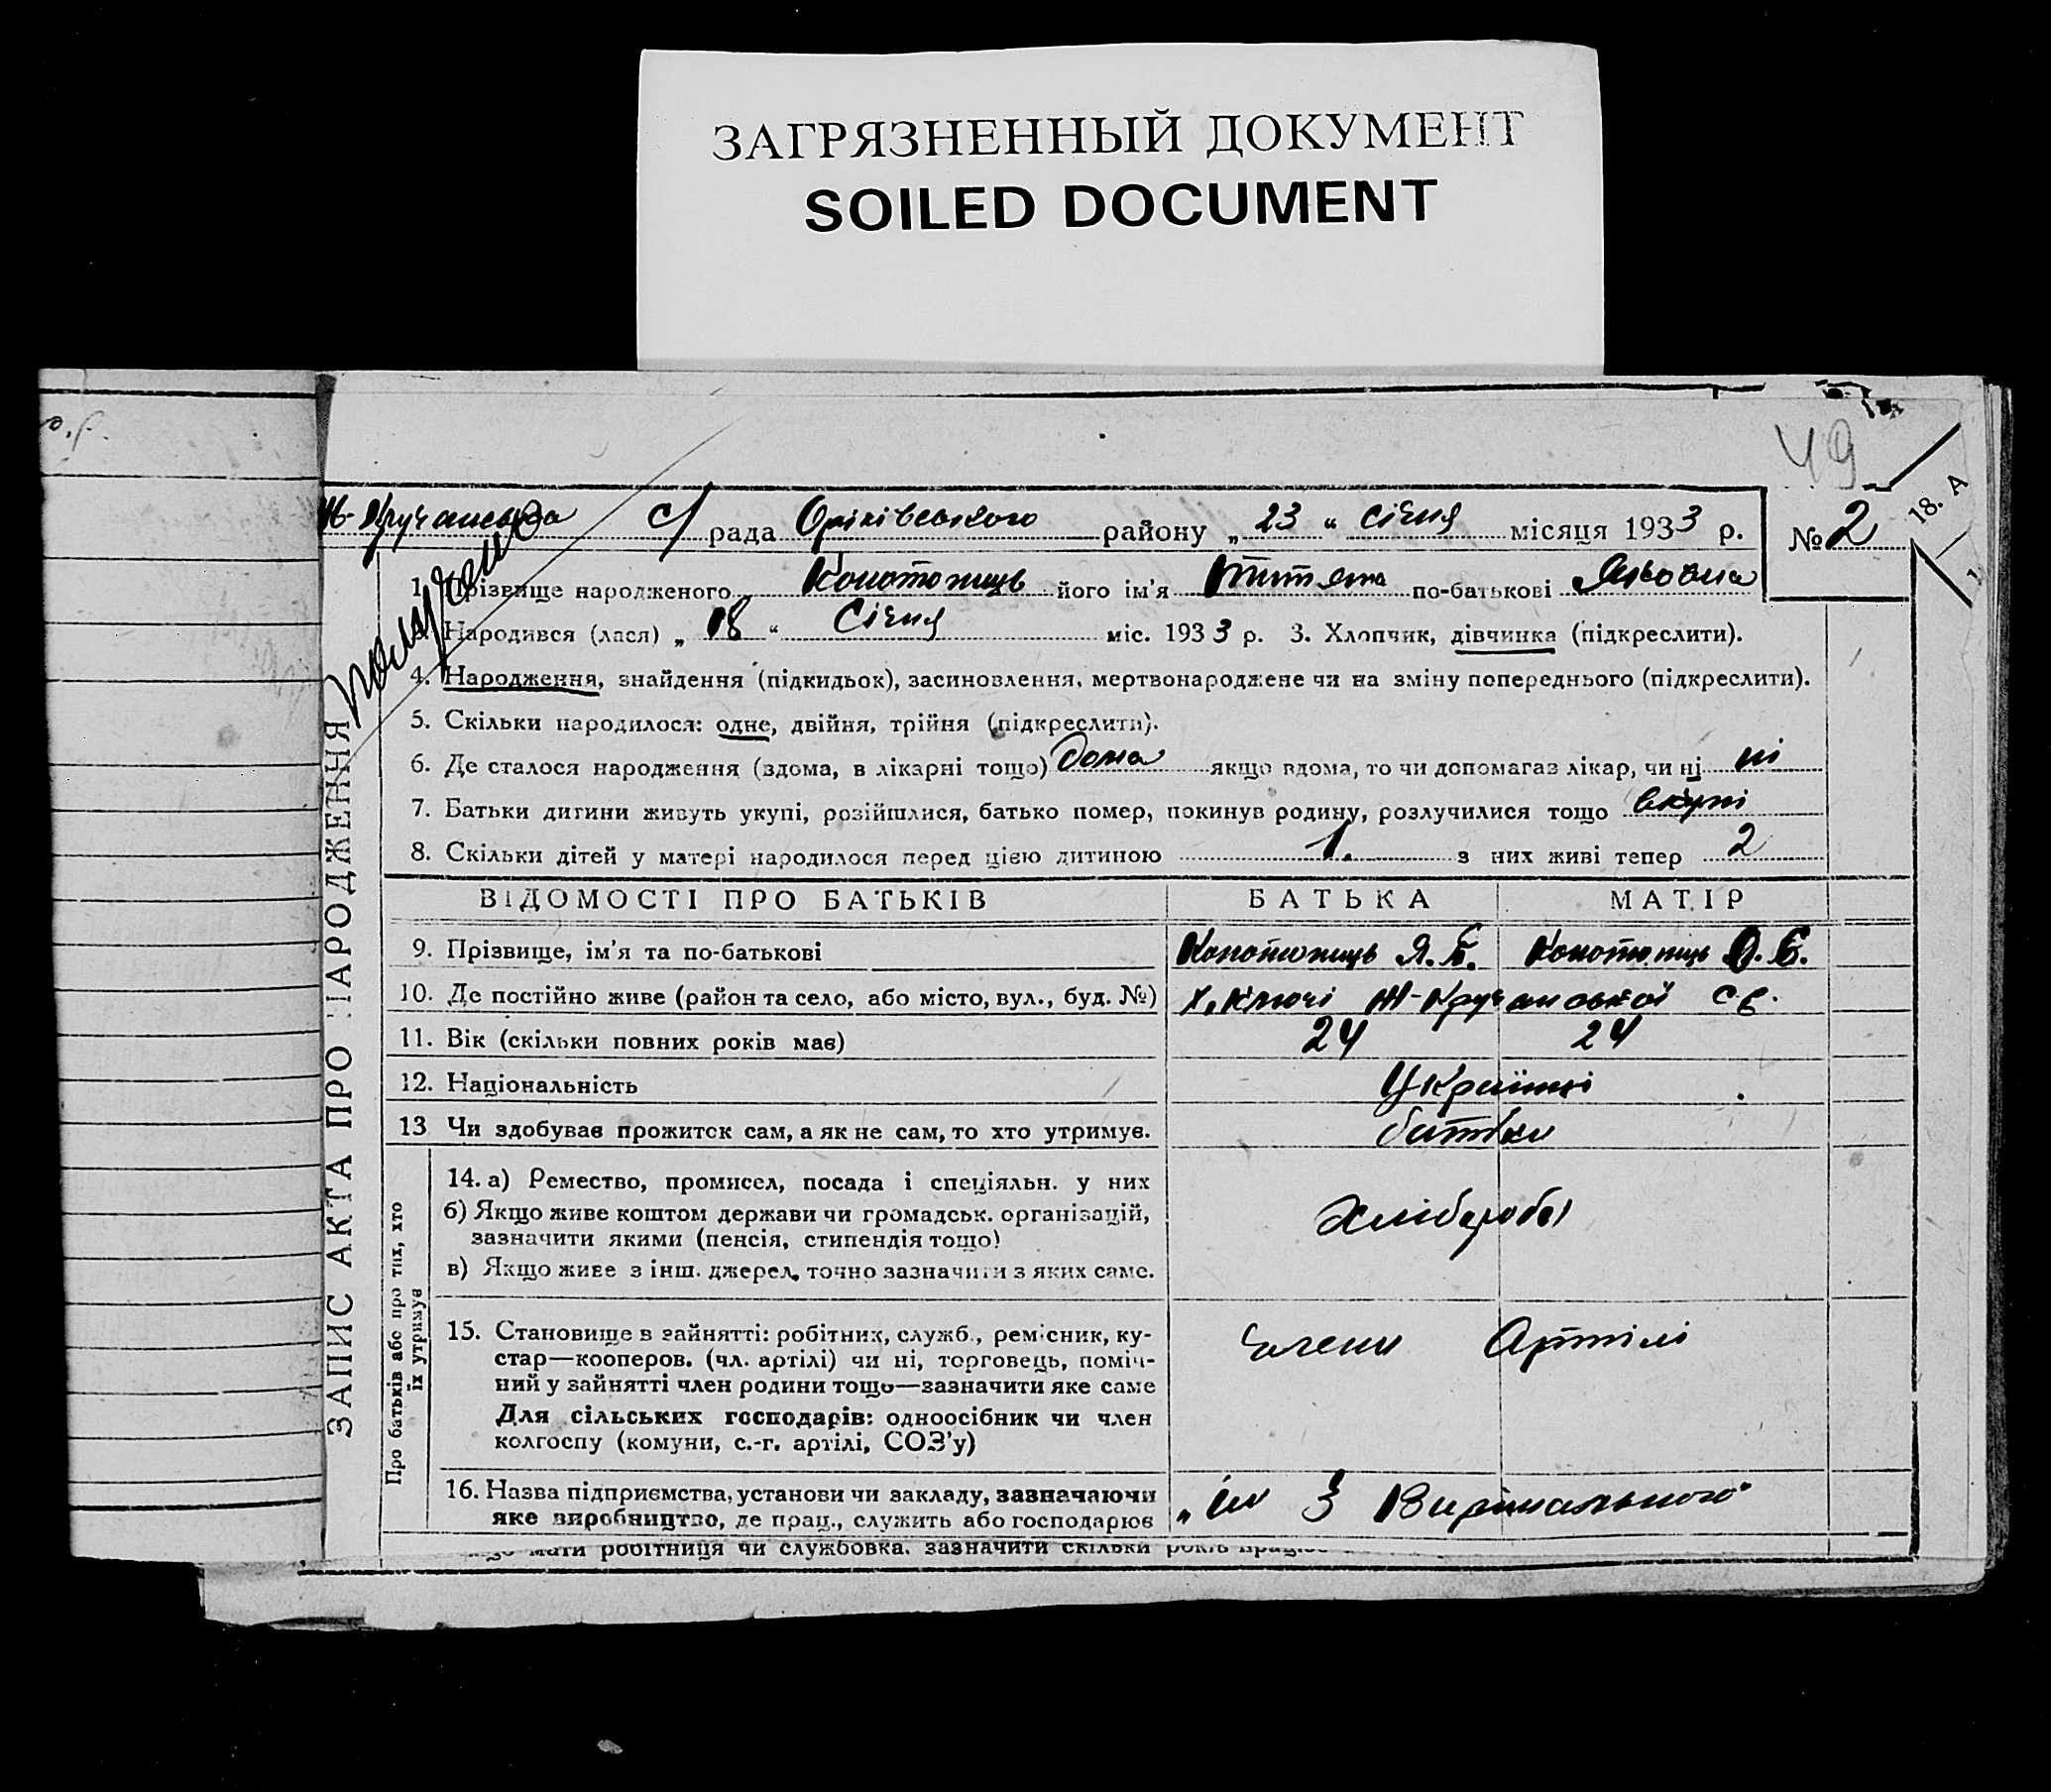 ЗАГРЯЗНЕННЫЙ ДОКУМЕНТ
SOILED DOCUMENT
49
18. А
с/ рада Оріхівського району „ 23 “ січня місяця 1933 р.
№ 2
1. Прізвище народженого Конотопець його ім'я Титяна по-батькові Яковівна
Народився (лася) „ 18 “ Січня міс. 1933 р. 3. Хлопчик, дівчинка (підкреслити).
4. Народження, знайдення (підкидьок), засиновлення, мертвонароджене чи на зміну попереднього (підкреслити).
5. Скільки народилося: одне, двійня, трійня (підкреслити).
6. Де сталося народження (вдома, в лікарні тощо) дома якщо вдома, то чи допомагав лікар, чи ні ні
7. Батьки дитини живуть укупі, розійшлися, батько помер, покинув родину, розлучилися тощо вкупі
8. Скільки дітей у матері народилося перед цією дитиною 1. з них живі тепер 2
ЗАПИС АКТА ПРО НАРОДЖЕННЯ
ВІДОМОСТІ ПРО БАТЬКІВ БАТЬКА МАТІР
9. Прізвище, ім'я та по-батькові Конотопець Я. Конотопець
10. Де постійно живе (район та село, або місто, вул., буд. №) х. Ключі
11. Вік (скільки повних років має) 24 24
12. Національність Українці
13 Чи здобуває прожиток сам, а як не сам, то хто утримує. батьки
Про батьків або про тих, хто
їх утримує
14. а) Ремество, промисел, посада і спеціяльн. у них
б) Якщо живе коштом держави чи громадськ. організацій,
зазначити якими (пенсія, стипендія тощо)
в) Якщо живе з інш. джерел, точно зазначити з яких саме.
Хлібороби
15. Становище в зайнятті: робітник, служб., ремісник, ку-
стар—кооперов. (чл. артілі) чи ні, торговець, поміч-
ний у зайнятті член родини тощо—зазначити яке саме
Для сільських господарів: одноосібник чи член
колгоспу (комуни, с.-г. артілі, СОЗ'у)
члени Артілі
16. Назва підприємства, установи чи закладу, зазначаючи
яке виробництво, де прац., служить або господарює
„ім 3 Вирішального“
мати робітниця чи службовка, зазначити скільки років